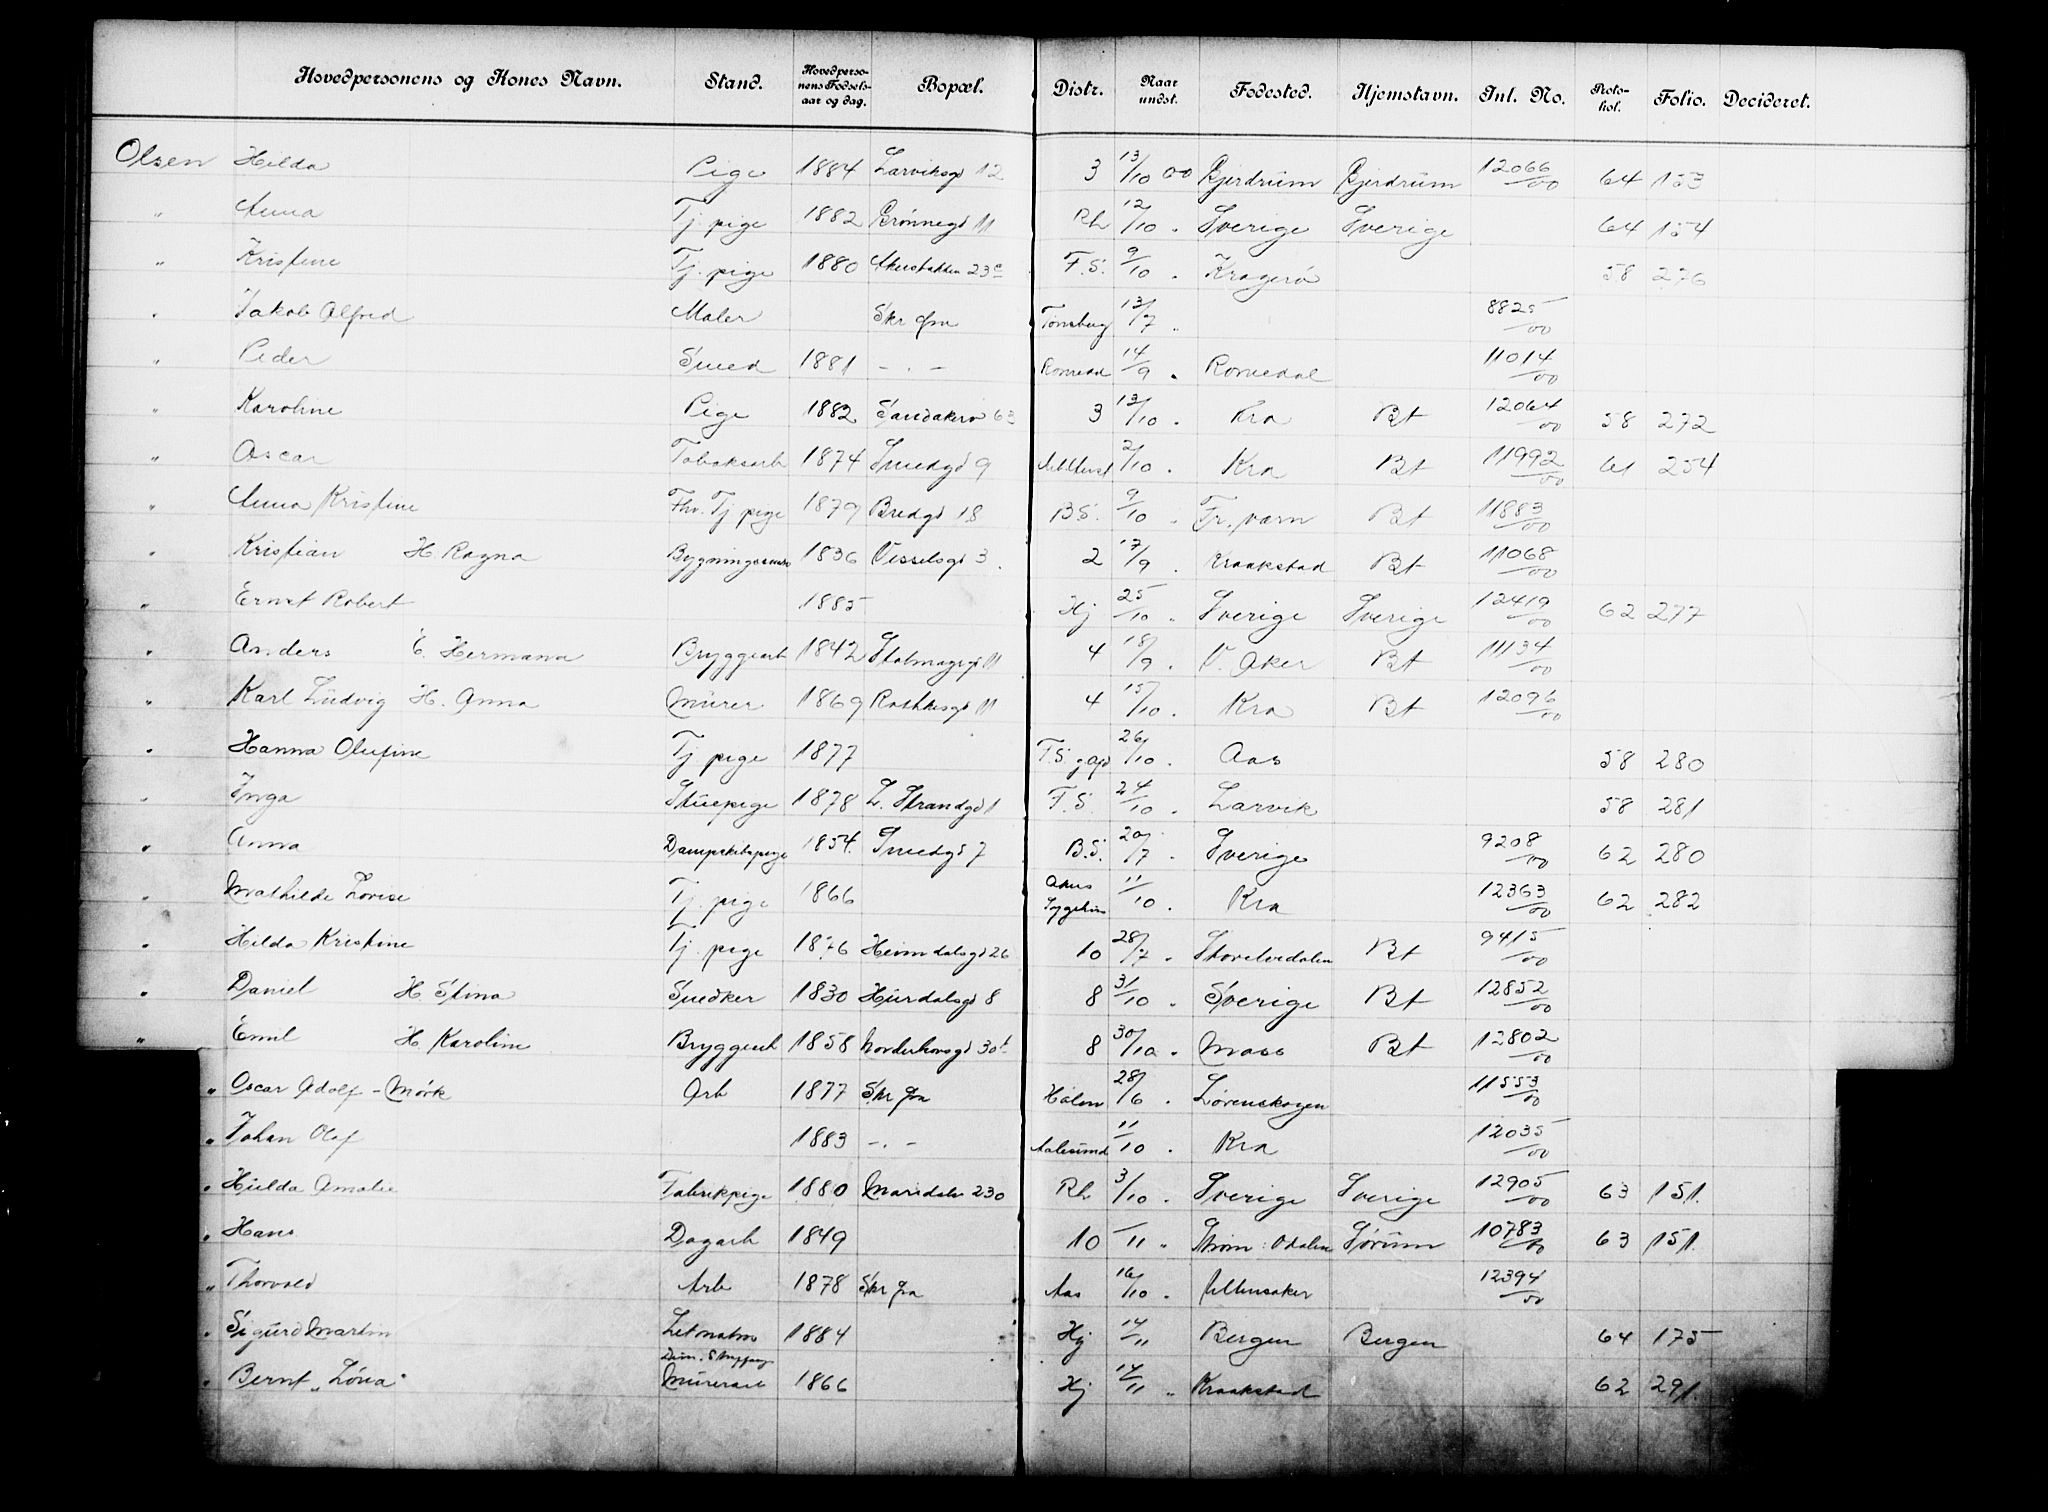 Hovedpersonens og Kones Navn. Stand. Hovedperso-nens Fødsels-aar og dag. Bopæl. Distr. Naar undst. Fødested. Hjemstavn. Inl. No. Proto-kol. Folio. Decideret.
Olsen Hilda Pige 1884 Larviksgd 12 3 13/10 00 Gjerdrum Gjerdrum 12066/00 64 153
" Anna Tj. pige 1882 Grønnegd 11 Rh 12/10 " Sverige Sverige 64 154
" Kristine Tj. pige 1880 Akersbakken 23c F.S. 9/10 " Kragerø 58 276
" Jakob Alfred Maler Skr fra Tønsberg 13/7 " 8825/00
" Peder Smed 1881 - " - Romedal 14/9 " Romedal 11014/00
" Karoline Pige 1882 Sandakerv 63 3 13/10 " Kra Bt 12064/00 58 272
" Oscar Tobaksarb 1874 Smedgd 9 2/10 " Kra Bt 11992/00 61 254
" Anna Kristine Fhv. Tj pige 1879 Bredgd 18 B.S. 9/10 " Fr.værn Bt 11883/00
" Kristian H. Ragna 1836 Vesselsgd 3 2 17/9 " Kraakstad Bt 11068/00
" Ernst Robert 1885 Hj 25/10 " Sverige Sverige 12419/00 62 277
" Anders E. Hermana Bryggearb 1842 11 4 18/9 " V. Aker Bt 11134/00
" Karl Ludvig H. Anna Murer 1869 Rathkesgd 11 4 15/10 " Kra Bt 12096/00
" Hanna Olufine Tj pige 1877 F.S. 26/10 " Aas 58 280
" Inga Stuepige 1878 L. Strandgd 1 F.S. 24/10 " Larvik 58 281
" Anna Dampskibspige 1854 Smedgd 7 B.S. 20/7 " Sverige 9208/00 62 280
" Mathilde Lovise Tj. pige 1866 Akers Sygehus 11/10 " Kra 12363/00 62 282
" Hilda Kristine Tj. pige 1876 Heimdalsgd 26 10 28/7 " Storelvedalen Bt 9415/00
" Daniel H Stina Snedker 1830 Hurdalsgd 8 8 31/10 " Sverige Bt 12852/00
" Emil H. Karoline Bryggearb 1858 Norderhovsgd 30 8 30/10 " Moss Bt 12802/00
" Oscar Adolf - Mørk Arb 1877 Skr fra Holm 28/6 " Lørenskogen 11553/00
" Johan Olaf 1883 - " - Aalesund 11/10 " Kra 12035/00
" Hulda Amalie Fabrikpige 1880 Maridalsv 230 Rh 3/10 " Sverige Sverige 12905/00 63 151.
" Hans Dagarb 1849 10 -/11 " Strøm: Odalen Sørum 10783/00 63 151.
" Thorvald Arb 1878 Skr fra Aas 16/10 " Ullensaker 12394/00
" Sigurd Martin Letmatros 1884 Hj 14/11 Bergen Bergen 64 175
" Bernt "Løva" Murerarb 1866 Hj 14/11 " Kraakstad 62 291.